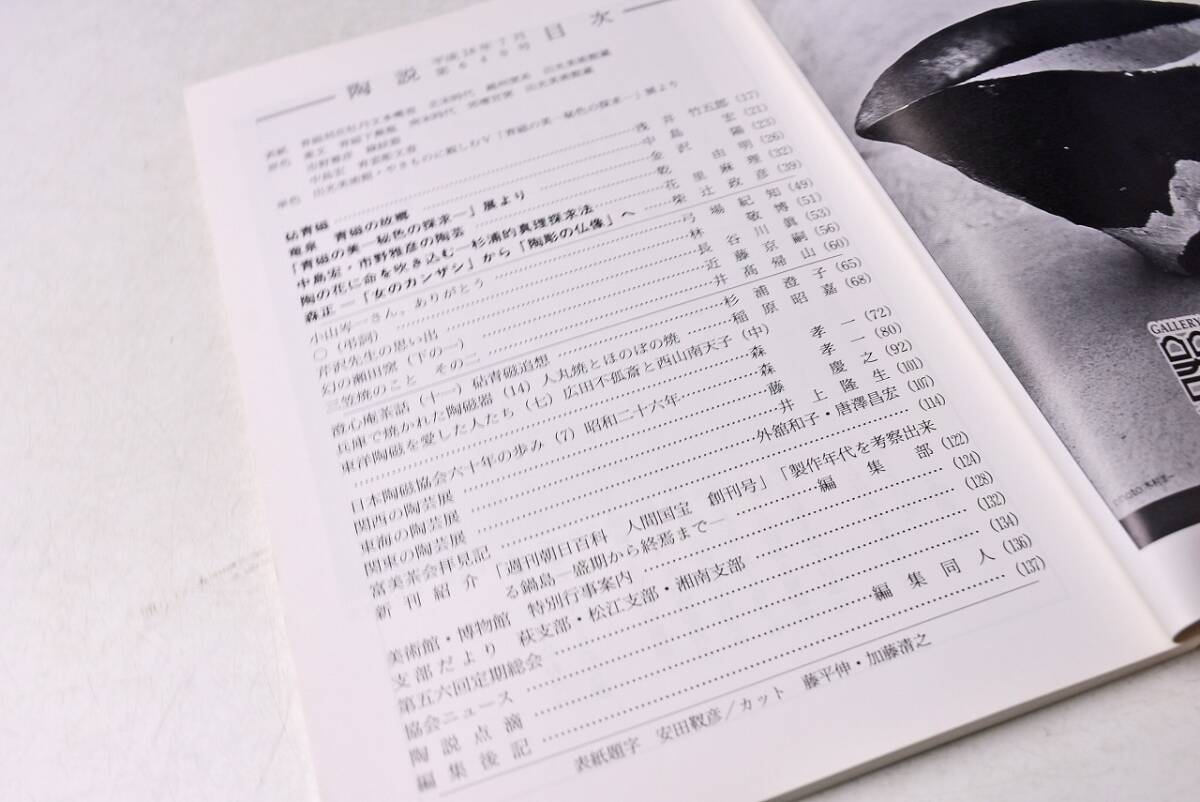 陶説 平成18年7月 目次
砧青磁 浅井竹五郎 (17)
竜泉 青磁の故郷 中島宏 (21)
「青磁の美―秘色の探求―」展より 金沢陽 (23)
中島宏・市野雅彦の陶芸 乾由明 (26)
陶の花に命を吹き込む―杉浦的真理探求法 花里麻理 (32)
森正―「女のカンザシ」から「陶彫の仏像」へ 柴辻政彦 (39)
小山岑一さん、ありがとう 弓場紀知 (49)
〇(弔詞) 林敬博 (51)
芹沢先生の思い出 長谷川眞 (53)
幻の瀬田窯(下の一) 近藤京嗣 (56)
三笠焼のこと その二 井高帰山 (60)
澄心庵茶話(十一)砧青磁追想 杉浦澄子 (65)
兵庫で焼かれた陶磁器(14)人丸焼とほのぼの焼 稲原昭嘉 (68)
東洋陶磁を愛した人たち(七)広田不孤斎と西山南天子(中)
森孝一 (72)
日本陶磁協会六十年の歩み(7)昭和二十六年 森孝一 (80)
関西の陶芸展 藤慶之 (92)
東海の陶芸展 井上隆生 (101)
関東の陶芸展 外舘和子・唐澤昌宏 (107)
富美茶会拝見記 (114)
新刊紹介 「週刊朝日百科 人間国宝 創刊号」「製作年代を考察出来
る鍋島―盛期から終焉まで― 編集部 (122)
美術館・博物館 特別行事案内 (124)
支部だより 萩支部・松江支部・湘南支部 (128)
第五六回定期総会 (132)
協会ニュース (134)
陶説点滴 編集同人 (136)
編集後記 (137)
表紙題字 安田靫彦/カット 藤平伸・加藤清之
GALLERY